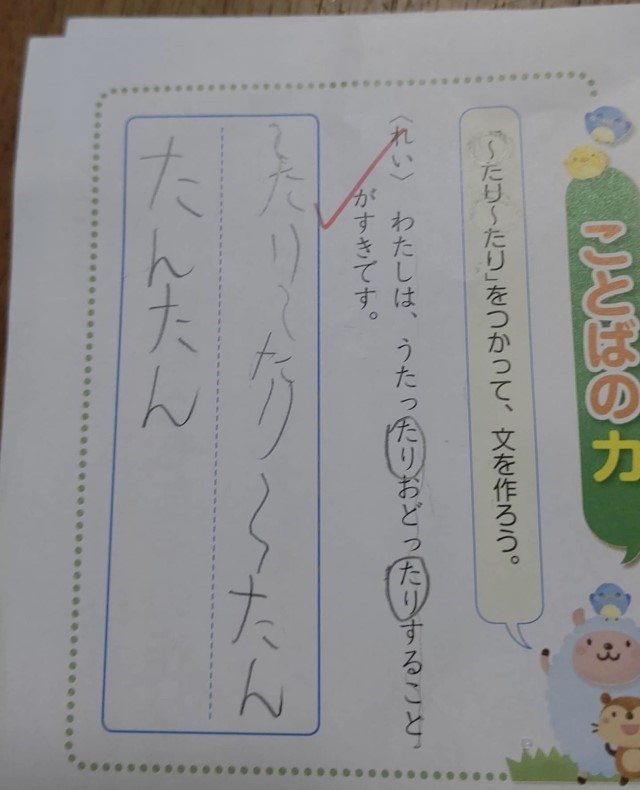 ことばの力
～たり～たり」をつかって、文を作ろう。
〈れい〉 わたしは、うたったりおどったりすること
がすきです。
～たり～たり～たん
たんたん